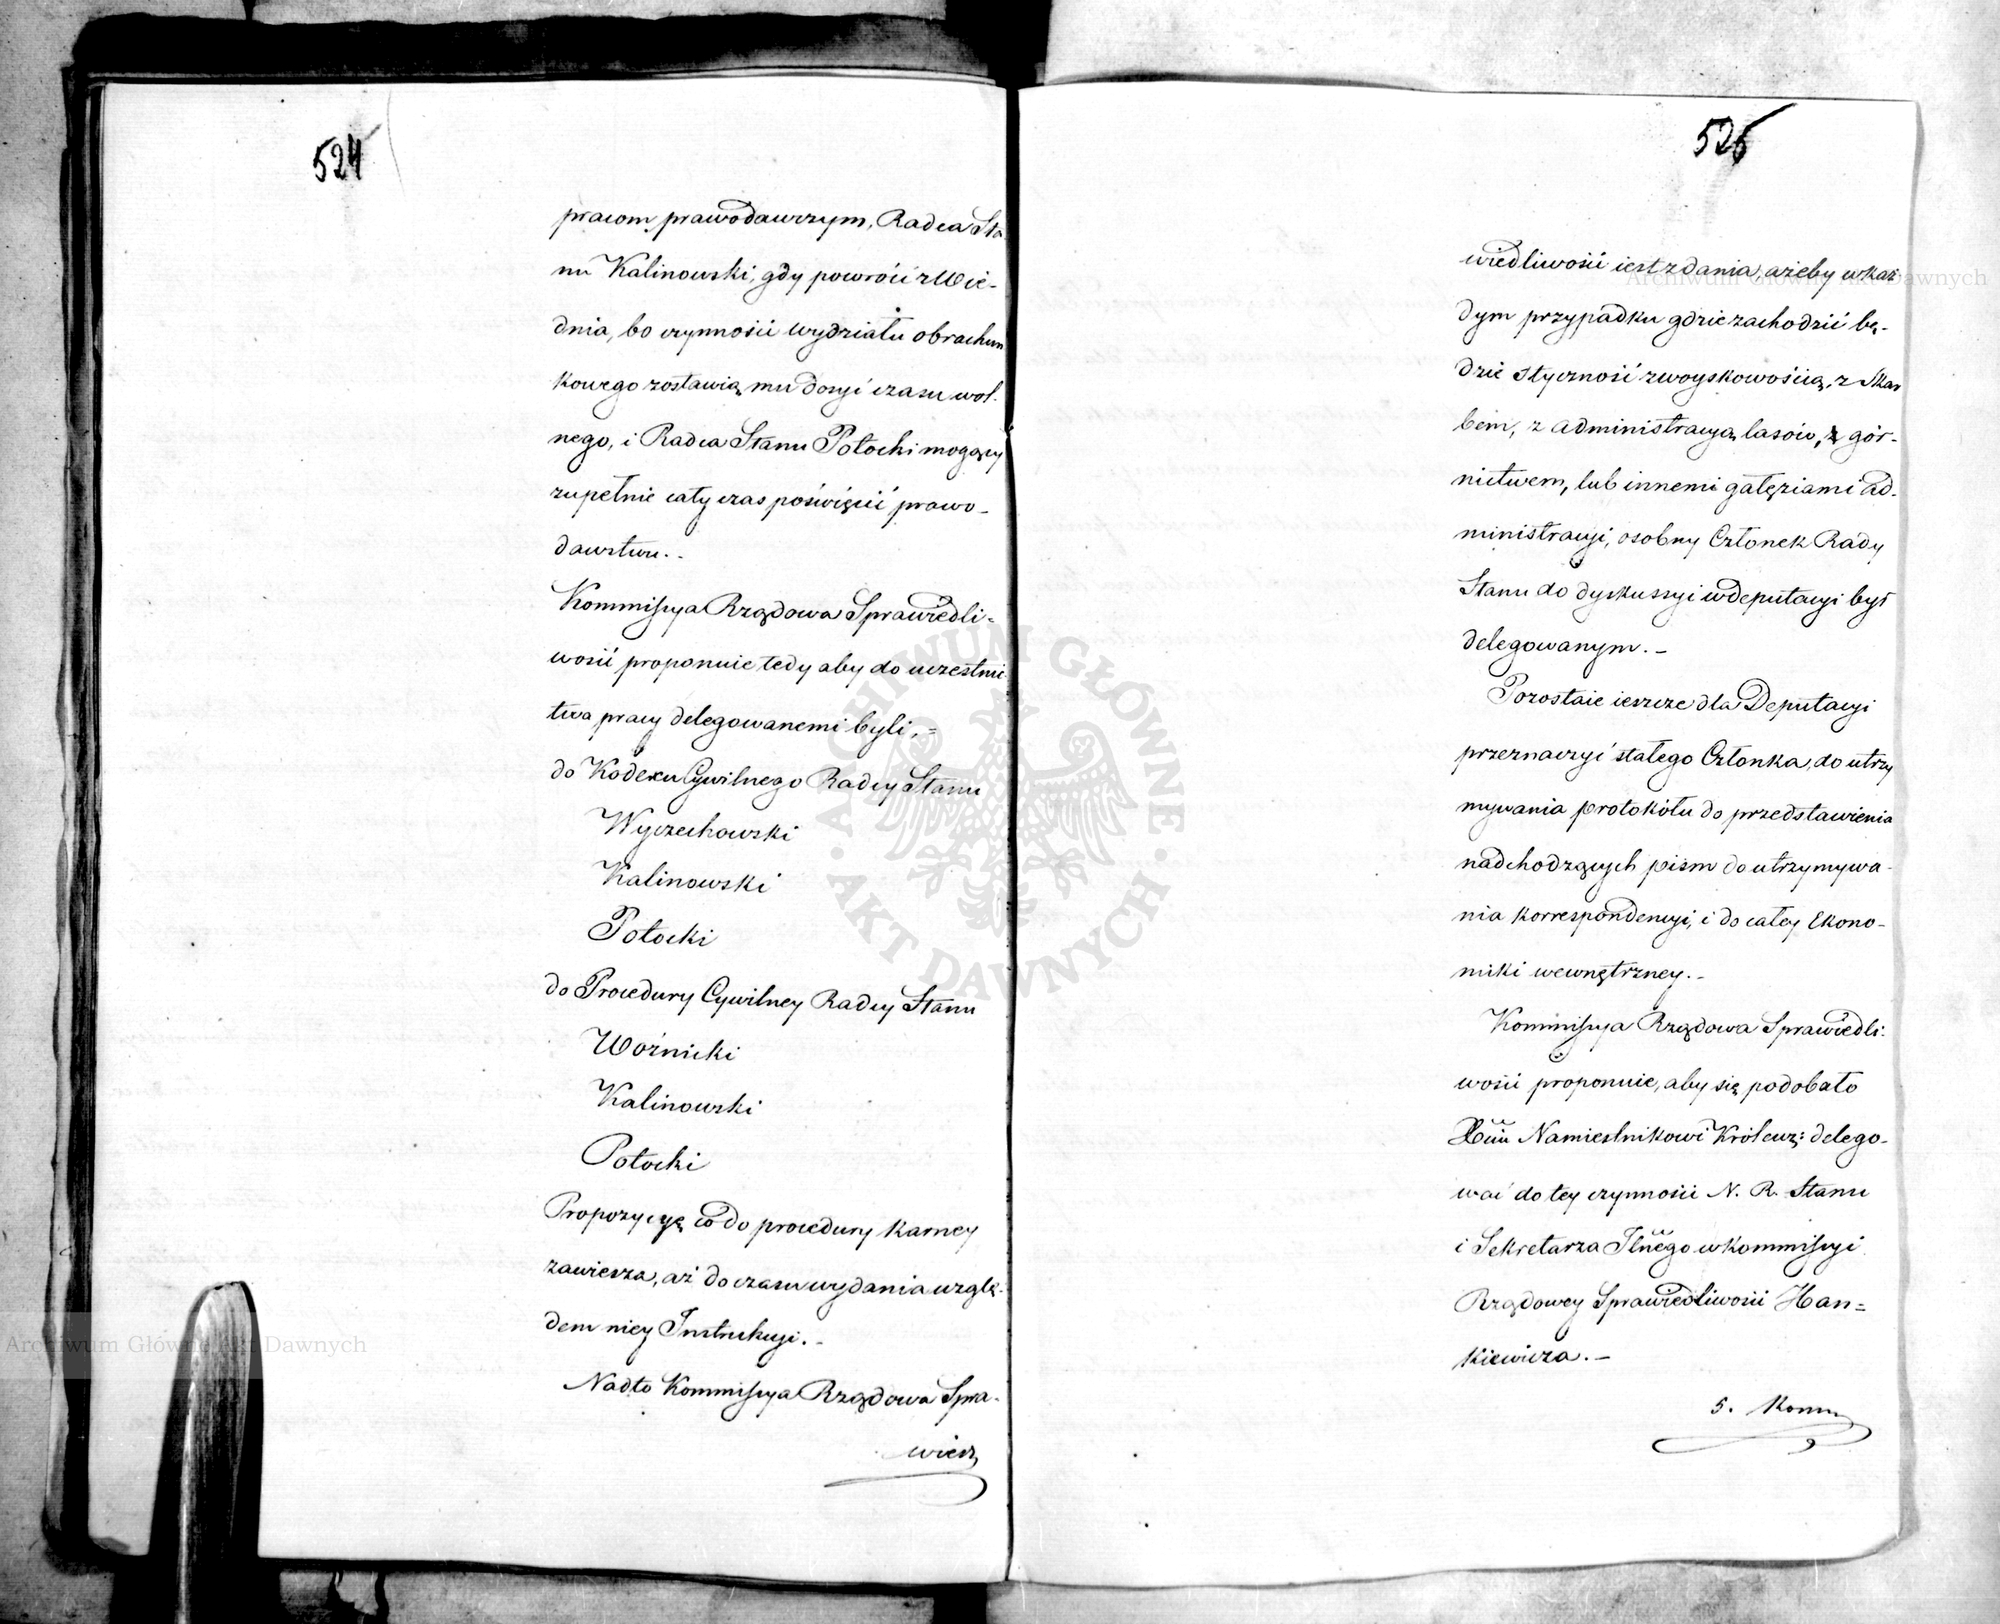 524
pracom prawodawczym, Radca Sta
nu Kalinowski, gdy powróci z Wie-
dnia, bo czynności wydziału obrachun
kowego zostawią mu dosyć czasu wol.
nego, i Radca Stanu Potocki mogący
zupełnie cały czas poświęcić prawo-
dawstwu. -
Kommissya Rządowa Sprawiedli-
wości proponuie tedy aby do uczestnic
twa pracy delegowanemi byli, =
do Kodexu Cywilnego Radcy Stanu
Wyczechowski
Kalinowski
Potocki
do Procedury Cywilney Radcy Stanu
Woźnicki
Kalinowski
Potocki
Propozycyę co do procedury karney
zawiesza, aż do czasu wydania wzglę-
dem niey Instrukcyi. -
Nadto Kommissya Rządowa Spra-
wied
525
wiedliwości iest zdania, ażeby w każ
dym przypadku gdzie zachodzić bę-
dzie styczność z woyskowością, z Skar
bem, z administracyą lasów, z gór-
nictwem, lub innemi gałęziami ad-
ministracyi, osobny Członek Rady
Stanu do dyskussyi w deputacyi był
delegowanym. -
Pozostaie ieszcze dla Deputacyi
przeznaczyć stałego Członka, do utrzy
mywania protokółu do przedstawienia
nadchodzących pism do utrzymywa-
nia korrespondencyi, i do całey Ekono-
miki wewnętrzney. -
Kommissya Rządowa Sprawiedli-
wości proponuie, aby się podobało
Xciu Namiestnikowi Królewz: delego-
wać do tey czynności N. R. Stanu
i Sekretarza Jlnego w Kommissyi
Rządowey Sprawiedliwości Han=
kiewicza. -
5. Komm
Archiwum Główne Akt Dawnych
Archiwum Główne Akt Dawnych
ARCHIWUM GŁÓWNE
· AKT DAWNYCH ·